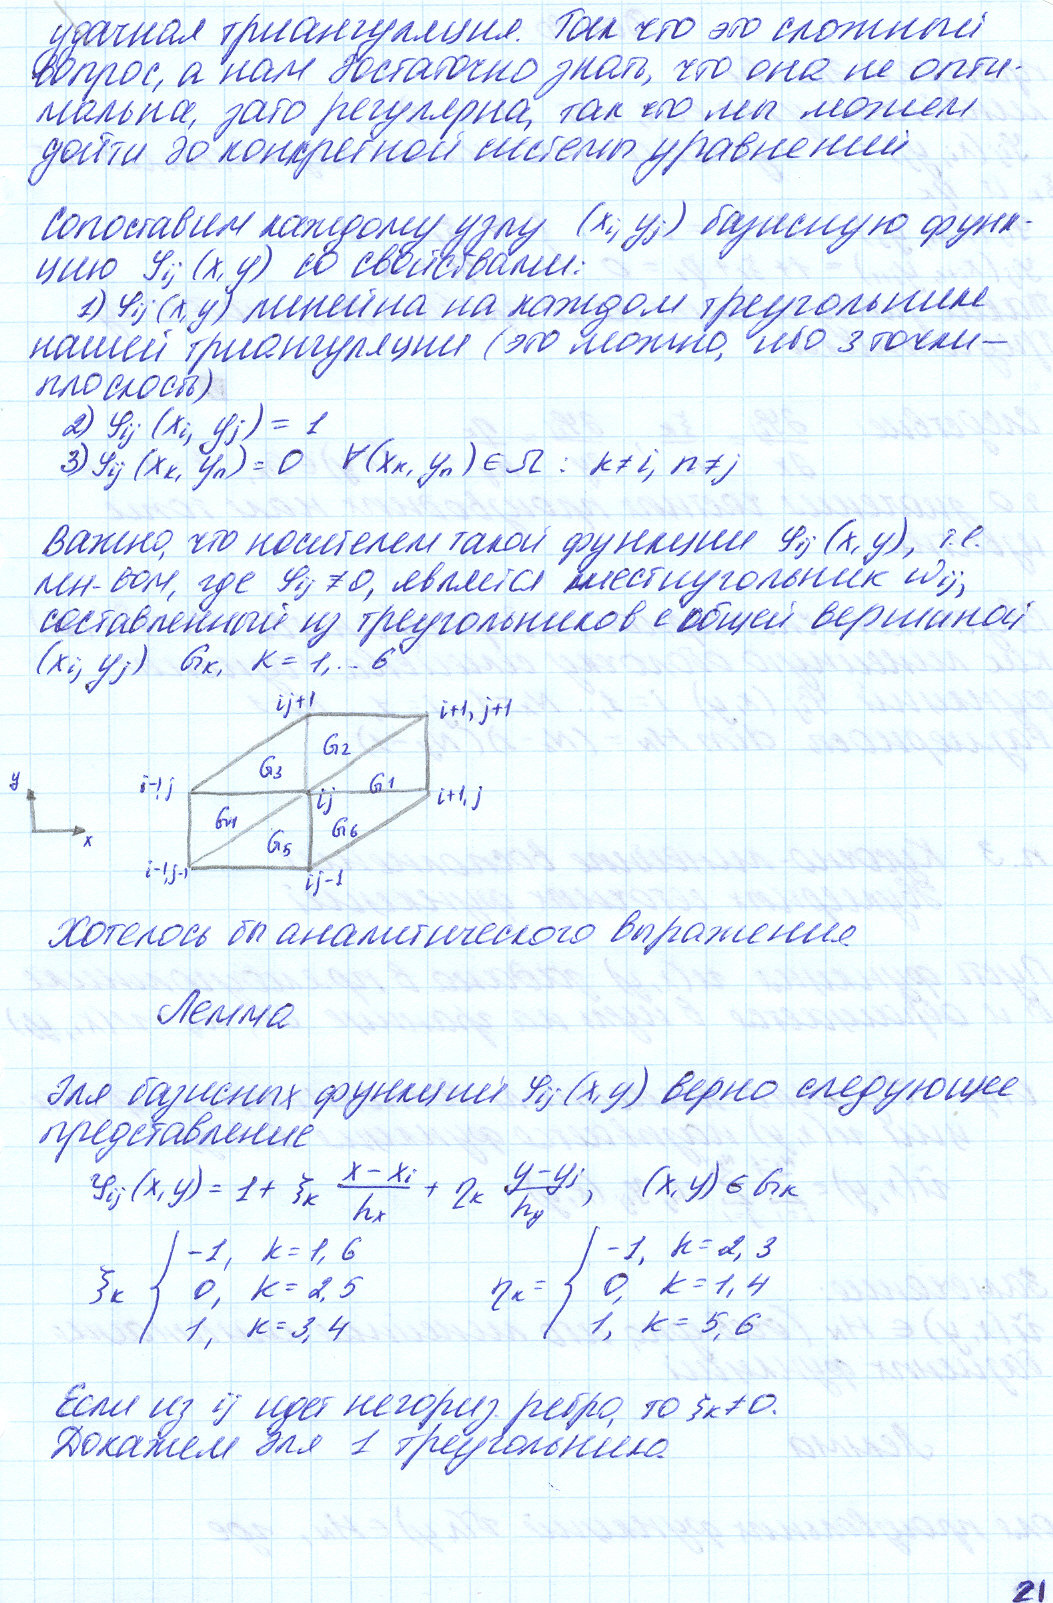 удачная триангуляция. Так что это сложный
вопрос, а нам достаточно знать, что она не опти-
мальна, зато регулярна, так что мы можем
дойти до конкретной системы уравнений
Сопоставим каждому узлу (xi, yj) базисную функ-
цию φij (x, y) со свойствами:
1) φij (x, y) линейна на каждом треугольнике
нашей триангуляции (это можно, ибо 3 точки —
плоскость)
2) φij (xi, yj) = 1
3) φij (xk, yn) = 0 ∀(xk, yn) ∈ Ω : k ≠ i, n ≠ j
Важно, что носителем такой функции φij (x, y), т.е.
мн-вом, где φij ≠ 0, является шестиугольник ωij,
составленный из треугольников с общей вершиной
(xi, yj) Gk, k = 1,.. 6
ij+1
i+1, j+1
G2
G3
y
i-1,j
G1
ij
i+1, j
G4
G6
x
G5
i-1,j-1
ij-1
Хотелось бы аналитического выражения
Лемма
Для базисных функций φij (x, y) верно следующее
представление
φij (x, y) = 1 + ξk (x - xi)/hx + ηk (y - yj)/hy, (x, y) ∈ Gk
ξk { -1, k = 1, 6 ηk = { -1, k = 2, 3
0, k = 2,5 0, k = 1, 4
1, k = 3, 4 1, k = 5, 6
Если из ij идет негориз. ребро, то ξk ≠ 0.
Докажем для 1 треугольника.
21